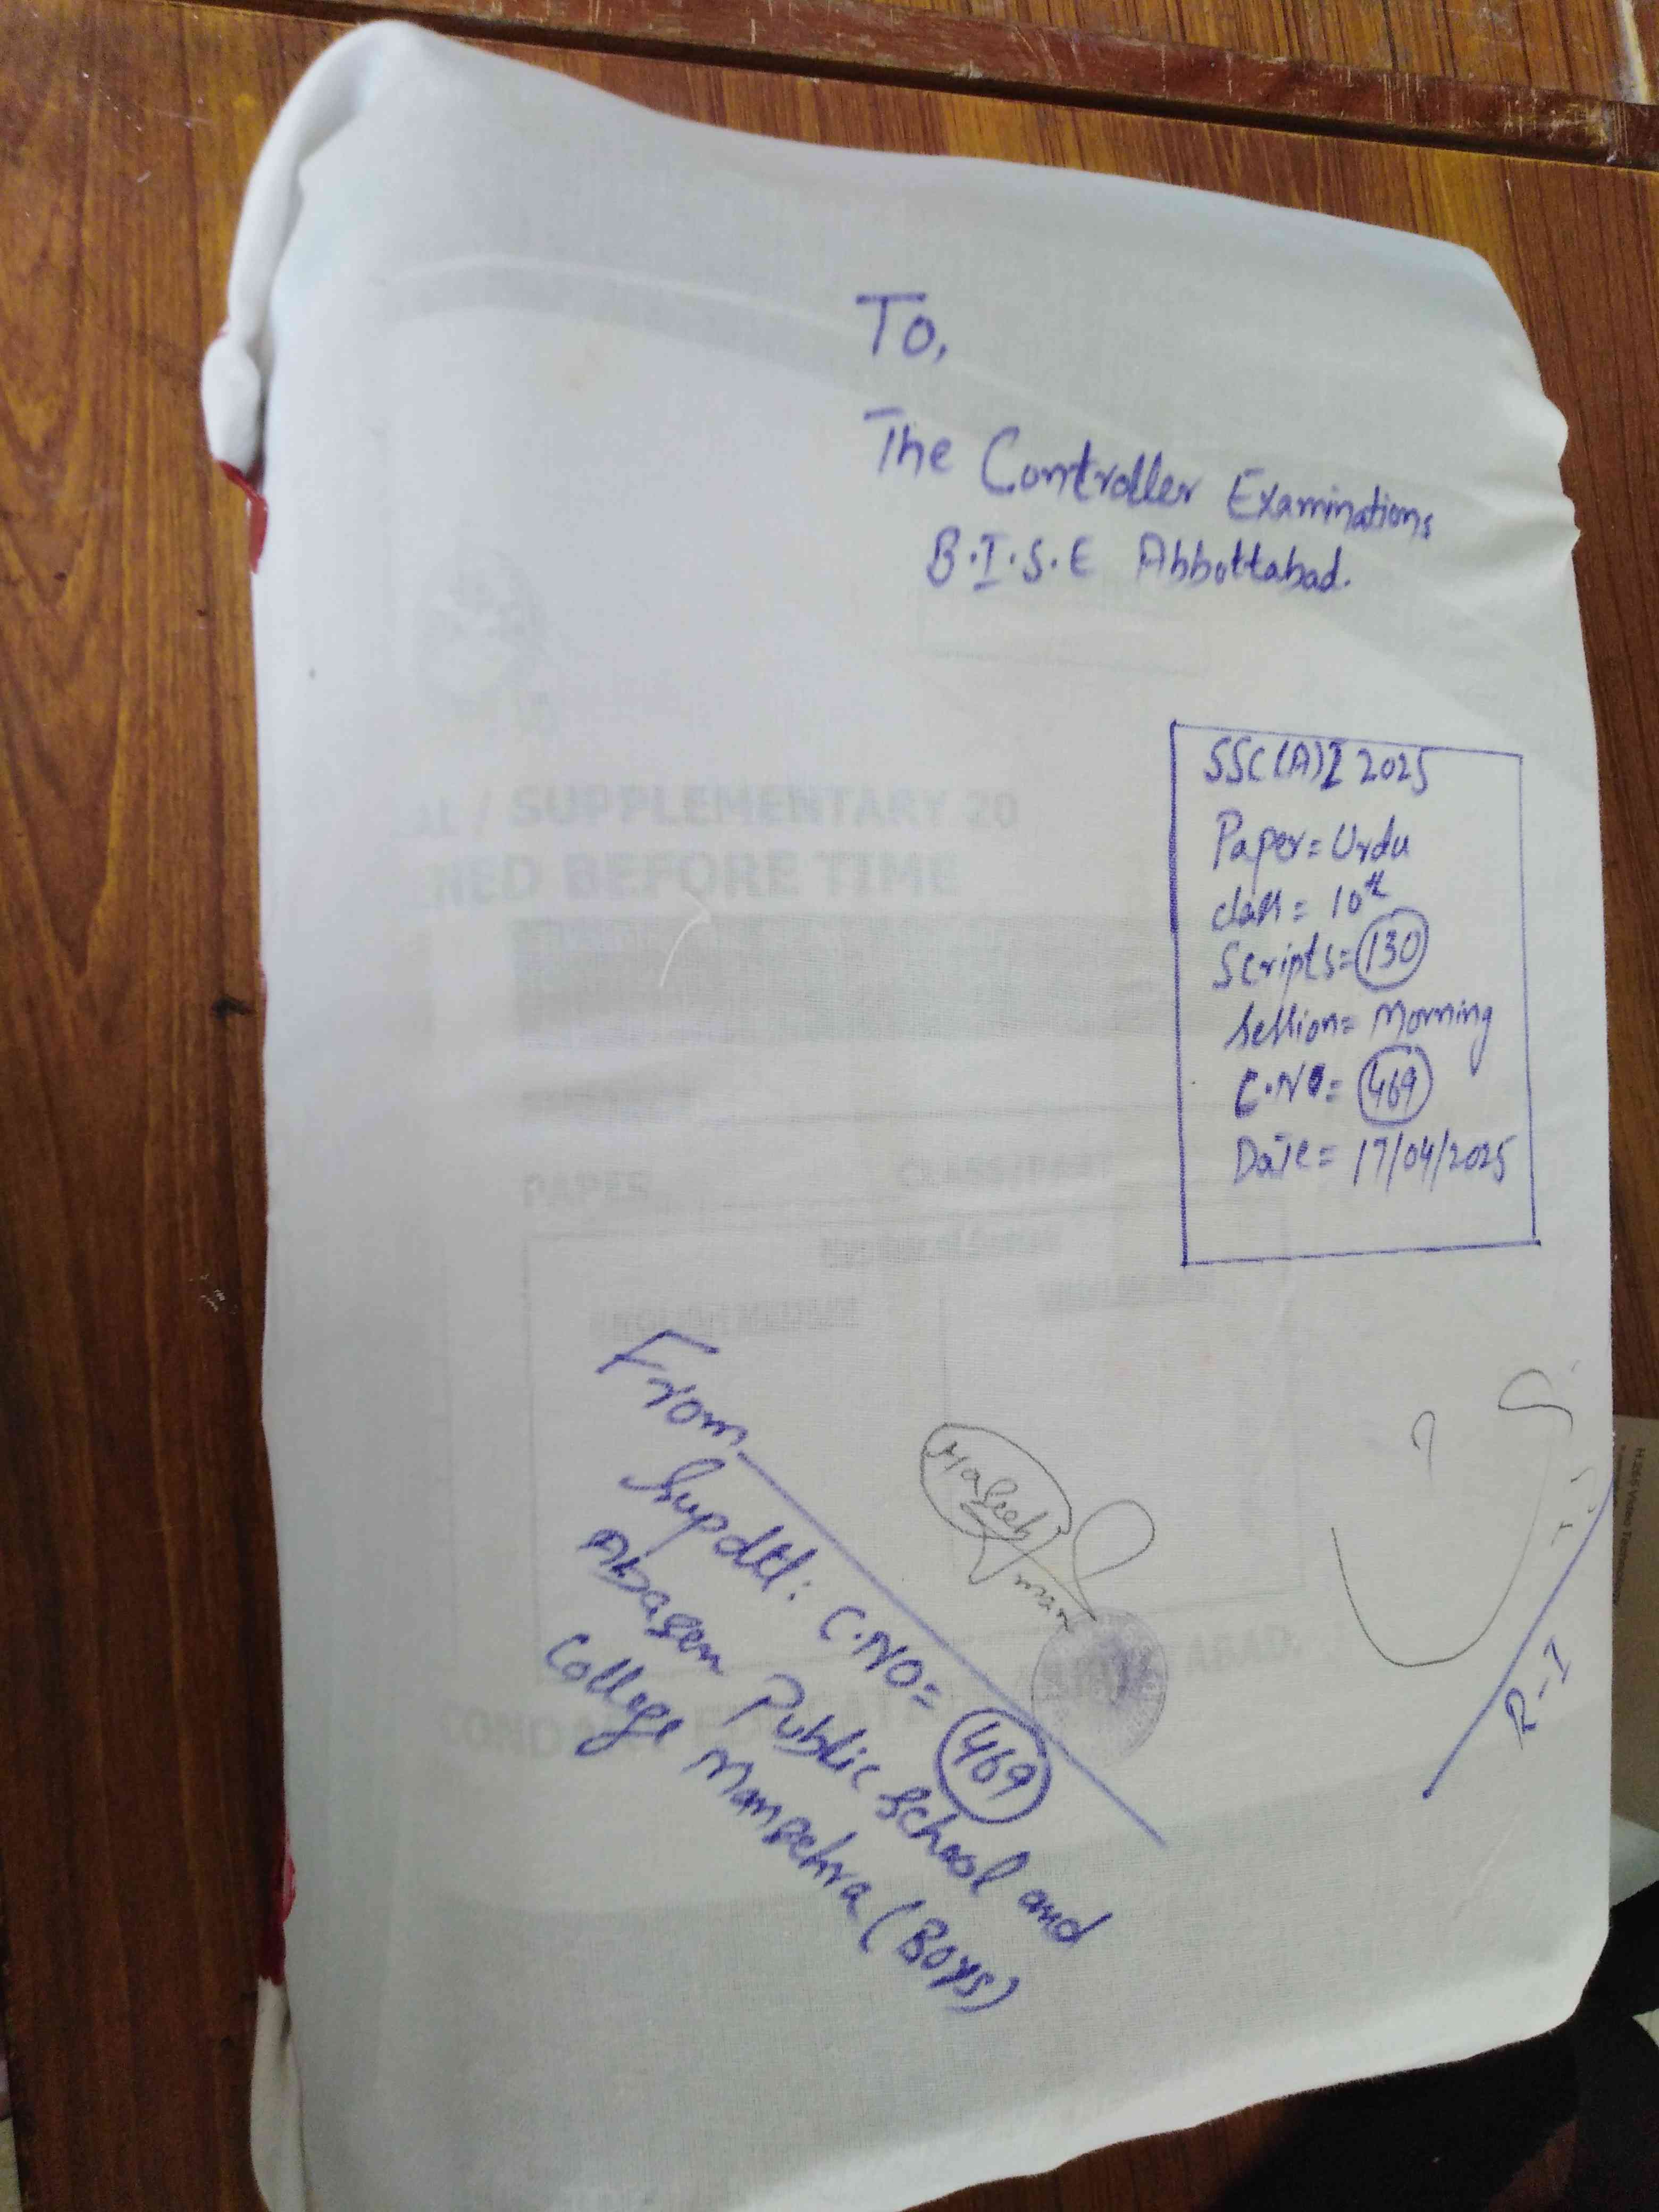 To,
The Controller Examinations
B.I.S.E Abbottabad.
SSC(A)I 2025
Paper= Urdu
class= 10th
Scripts= 130
Session= Morning
C.NO= 469
Date= 17/04/2025
AL / SUPPLEMENTARY 20
NED BEFORE TIME
PAPER
From,
Supdtt: C.NO= 469
Abaseen Public School and
College Mansehra (Boys)
Haseeb
R-I